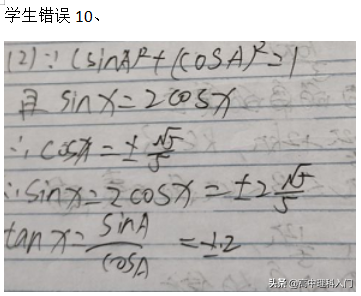 学生错误 10、
(2)∵(sinA)²+(cosA)²=1
且 sinx=2cosx
∴cosx=±√5/5
∴sinx=2cosx=±2√5/5
tanx=sinA/cosA=±2
头条 @高中理科入门